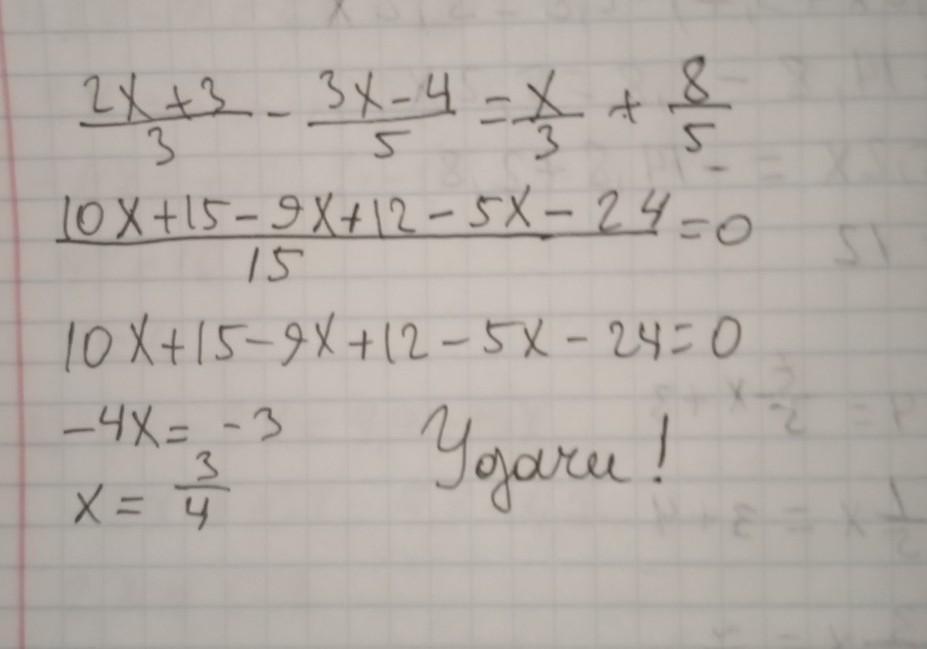 (2x+3)/3 - (3x-4)/5 = x/3 + 8/5
(10x+15-9x+12-5x-24)/15 = 0
10x+15-9x+12-5x-24=0
-4x= -3
x= 3/4
Удачи!